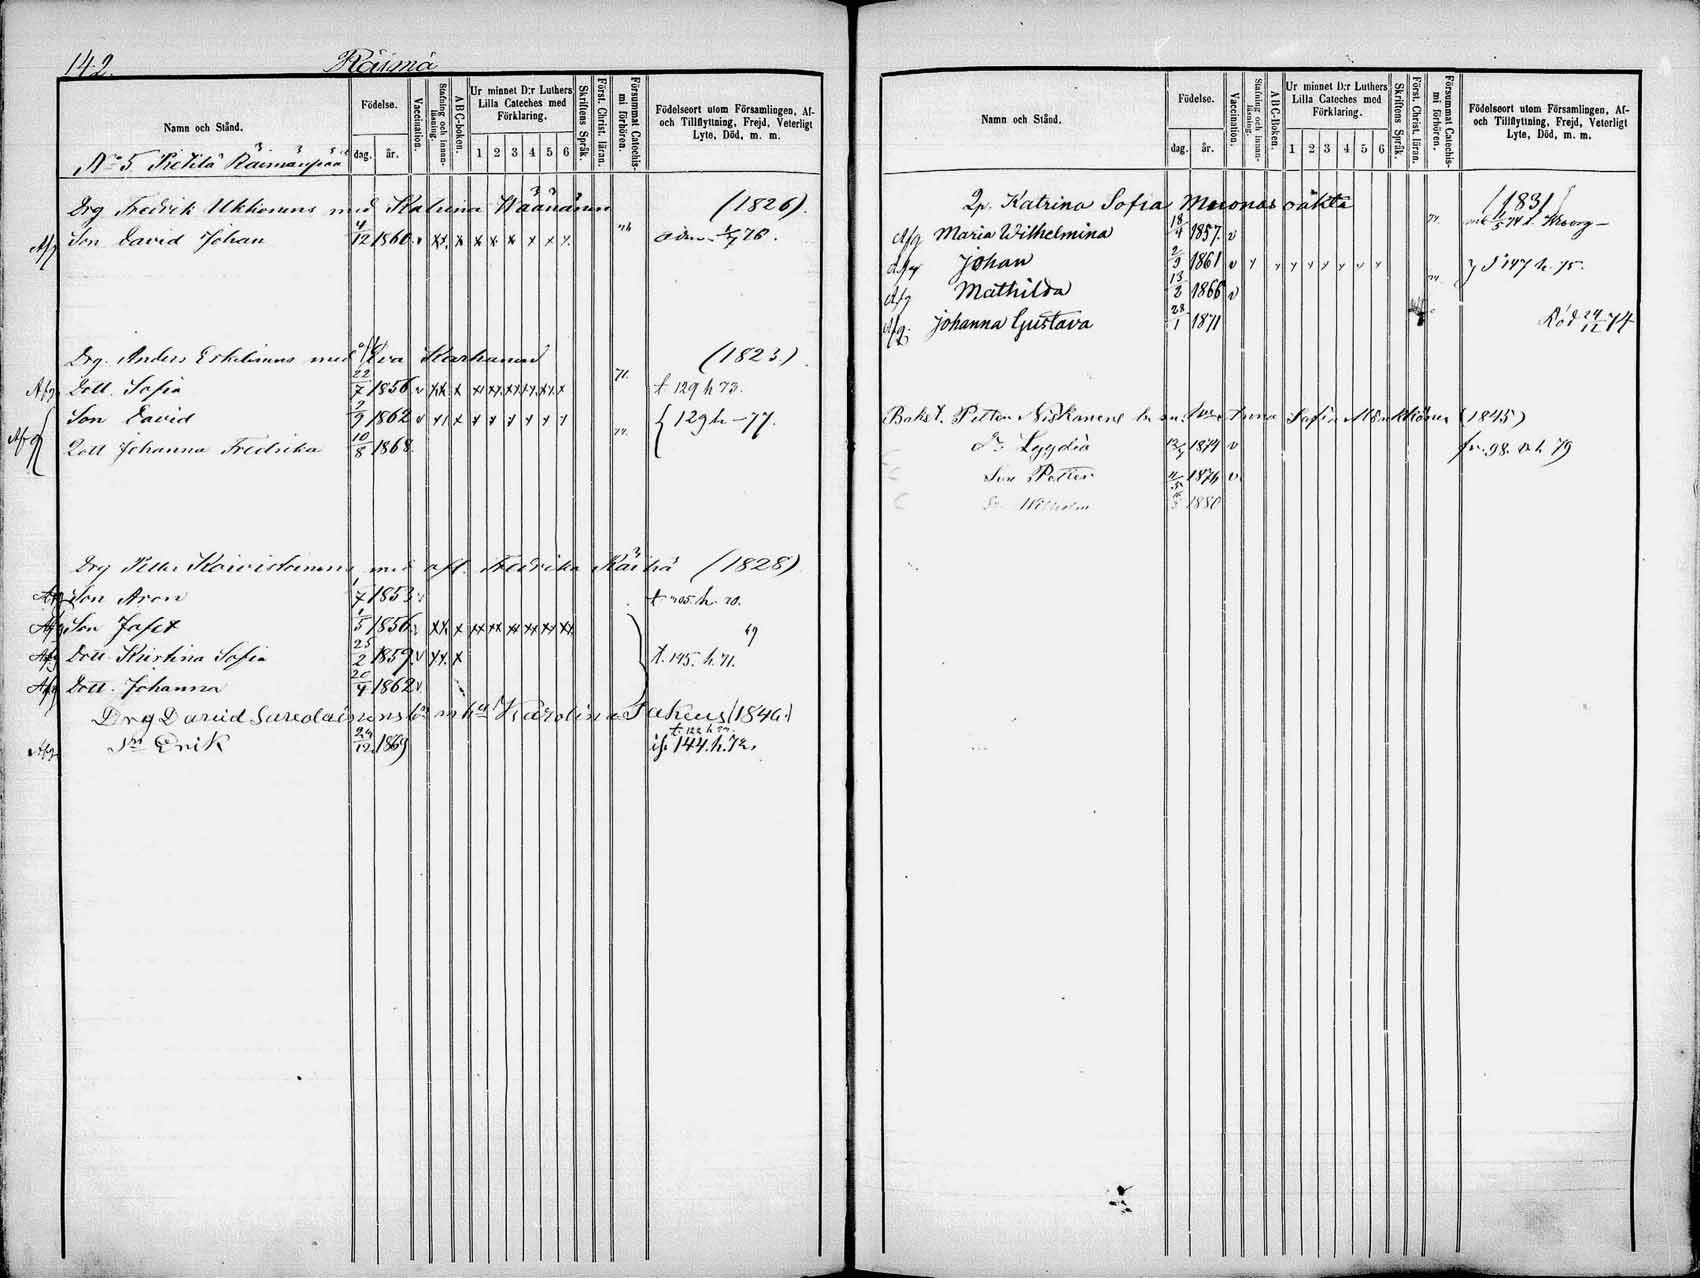 142. Räsmä
Namn och Stånd.
Födelse.
dag. år.
Vaccination.
Stafning och innan-läsning.
ABC-boken.
Ur minnet D:r Luthers Lilla Cateches med Förklaring.
1 2 3 4 5 6
Skriftens Språk.
Först. Christ. läran.
Försummat Catechis-mi förhören.
Födelseort utom Församlingen, Af- och Tillflyttning, Frejd, Veterligt Lyte, Död, m. m.
No 5 Pietilä
Drg Fredrik Ukkonens med Katrina Väänänen (1826).
Afg Son David Johan 4/12 1860 v xx x x x x x x x 76
Drg. Anders Eskelinens med Eva Karhunen (1823.)
Afg Dott. Sofia 22/7 1856 v t 129 h 73.
Son David 7/9 1862 v { 129 h - 77.
Afg { Dott Johanna Fredrika 10/8 1868
Drg Petter Koivistoinens med afl. Fredrika Räihä (1828)
Afg Son Aron 1/7 1853
Afg Son Jafet 1/5 1856 69
Afg Dott. Kristina Sofia 25/2 1859 v t. 145. h. 71.
Afg Dott. Johanna 20/4 1862 v.
Drg David Karolina (1846.)
t. 122 h
Afg Sn Erik 24/12 1869 144. h. 72.
Namn och Stånd.
Födelse.
dag. år.
Vaccination.
Stafning och innan-läsning.
ABC-Boken.
Ur minnet D:r Luthers Lilla Cateches med Förklaring.
1 2 3 4 5 6
Skriftens Språk.
Först. Christ. läran.
Försummat Catechis-mi förhören.
Födelseort utom Församlingen, Af- och Tillflyttning, Frejd, Veterligt Lyte, Död, m. m.
Katrina Sofia Muonas oäkta (1831)
Afg Maria Wilhelmina 18/4 1857. v
Afg Johan 2/9 1861 v 147 h. 75.
Afg Mathilda 13/2 1866 v
Afg. Johanna Gustava 28/1 1871 Död 24/12 74
Petter Niskanens Anna Sofia (1845)
Dr Lyydia 1874 v fr. 98. h. 79
Son Petter 11/5 1876 v.
1880